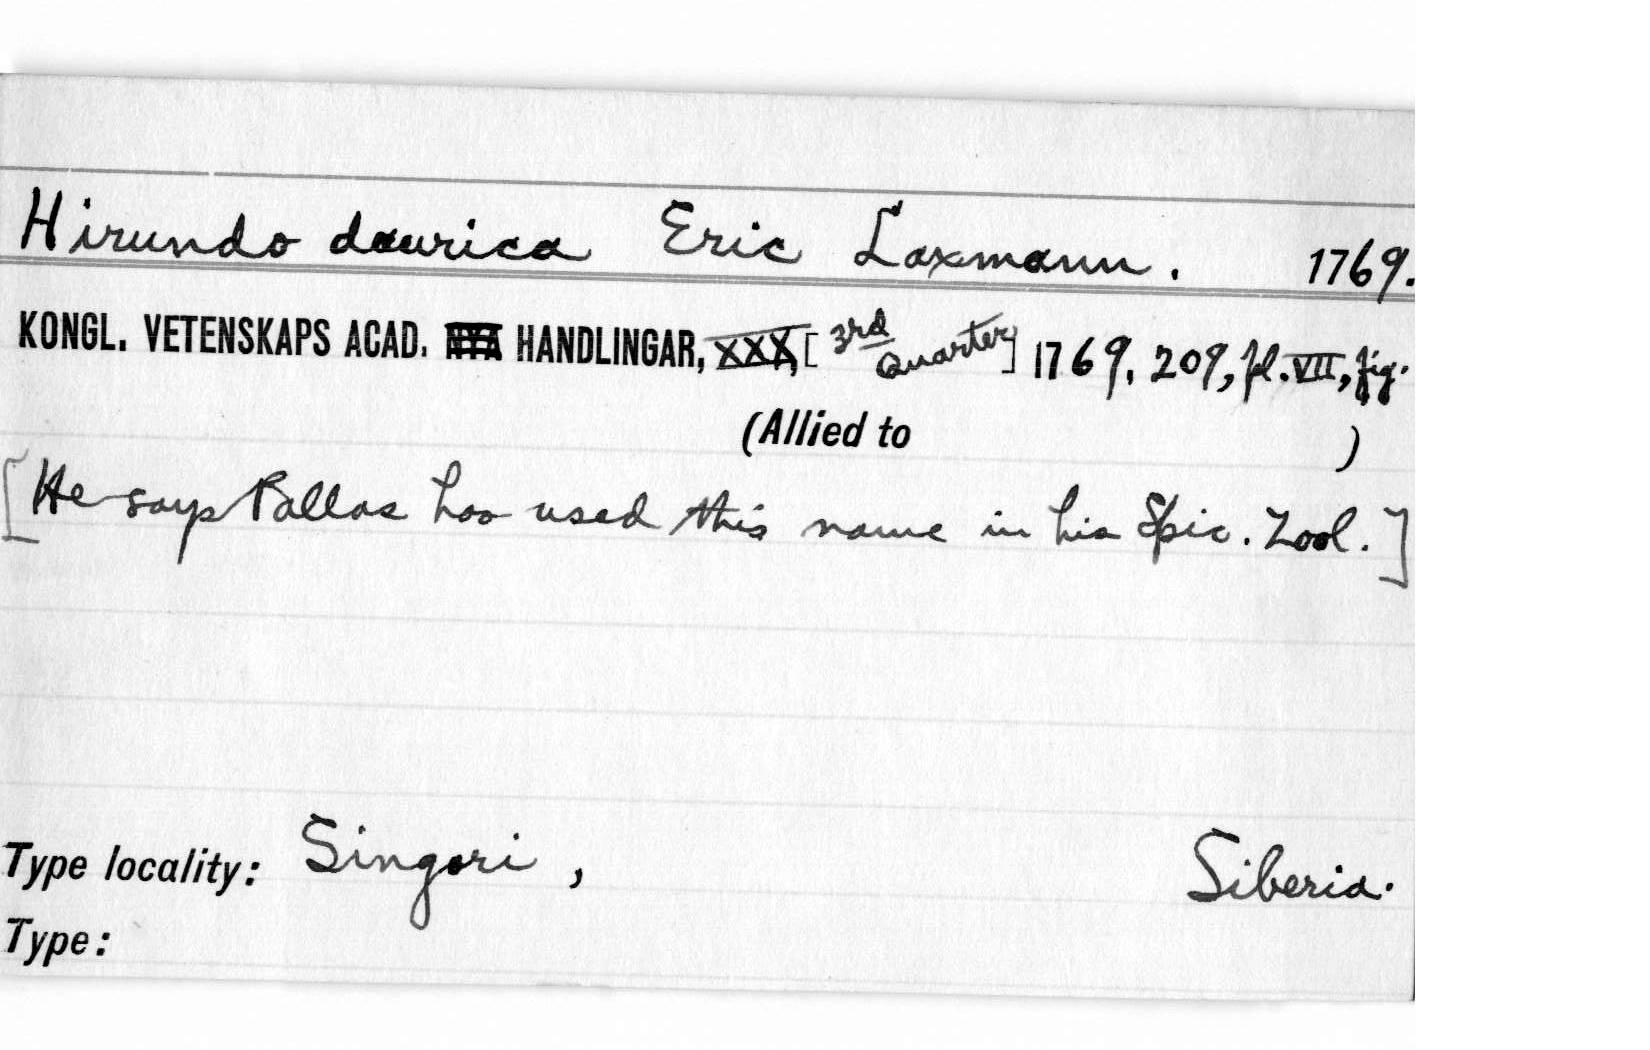 Hirundo daurica Eric Laxmann. 1769.
KONGL. VETENSKAPS ACAD. NYA HANDLINGAR, XXX, [3rd Quarter] 1769, 209, pl. VII, fig.
(Allied to )
[He says Pallas has used this name in his Spic. Zool.]
Type locality: Singori, Siberia.
Type: